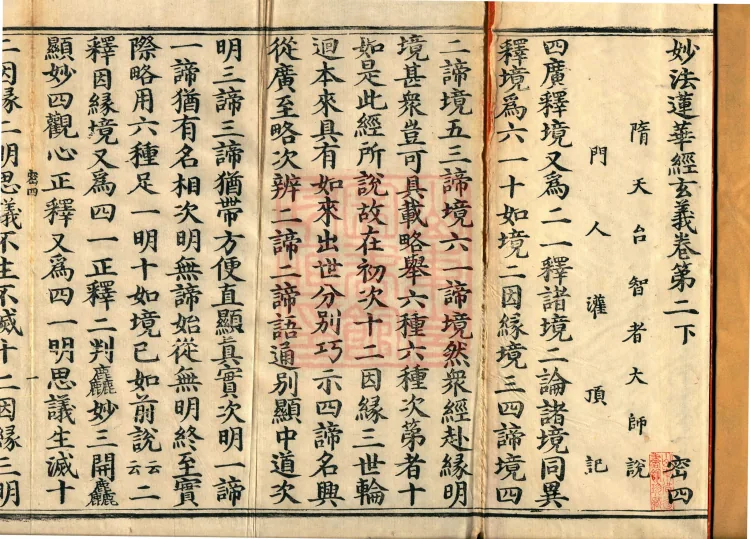 妙法蓮華經玄義卷第二下 密四
隋天台智者大師說
門人灌頂記
四廣釋境又為二一釋諸境二論諸境同異
釋境為六一十如境二因緣境三四諦境四
二諦境五三諦境六一諦境然眾經赴緣明
境甚眾豈可具載略舉六種六種次第者十
如是此經所說故在初次十二因緣三世輪
迴本來具有如來出世分別巧示四諦名興
從廣至略次辨二諦二諦語通別顯中道次
明三諦三諦猶帶方便直顯真實次明一諦
一諦猶有名相次明無諦始從無明終至實
際略用六種足一明十如境已如前說云云二
釋因緣境又為四一正釋二判麤妙三開麤
顯妙四觀心正釋又為四一明思議生滅十
密四 一
二因緣二明思議不生不滅十二因緣三明